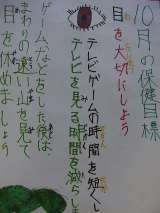 10月の保健目標
目を大切にしよう
テレビゲームの時間を短くし
テレビを見る時間を減らし
ゲームなどをした後は、
まわりの遠い山を見て
目を休めましょう